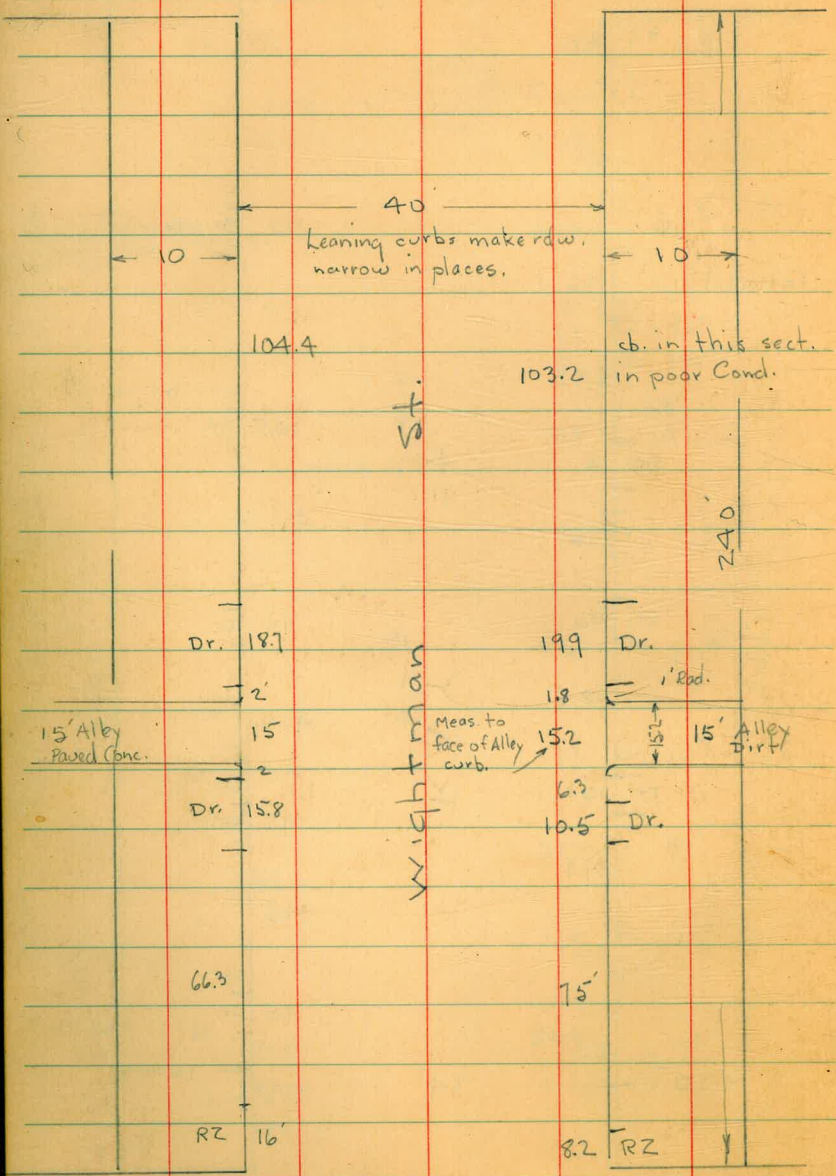 40
Leaning curbs make rdw.
narrow in places.
10
10
104.4
103.2
cb. in this sect.
in poor Cond.
Wightman St.
240'
Dr. 18.7
19.9 Dr.
2'
1.8
1' Rad.
15' Alley
Paved Conc.
15
Meas. to
face of Alley
curb.
15.2
15.2
15' Alley
Dirt
2
6.3
Dr. 15.8
10.5 Dr.
66.3
75'
RZ 16'
8.2 RZ